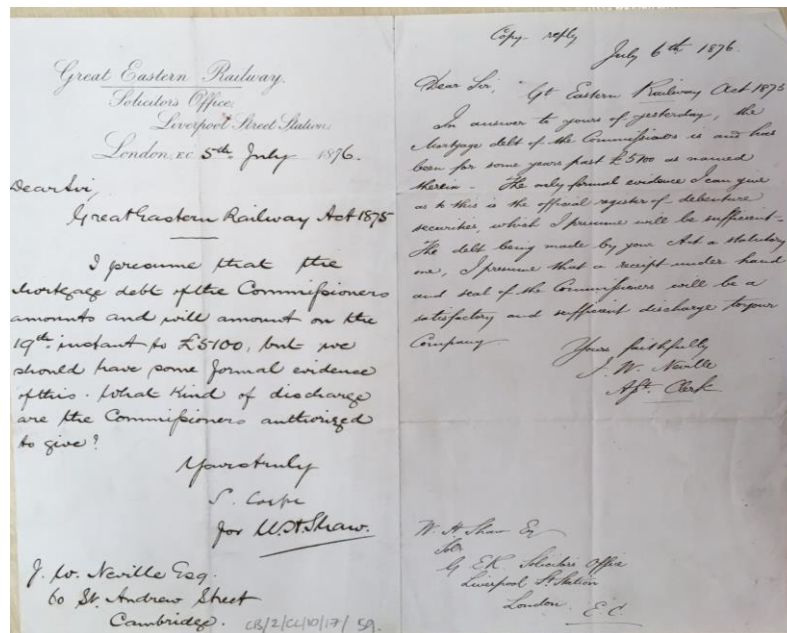 Great Eastern Railway.
Solicitors Office,
Liverpool Street Station,
London, E.C. 5th July 1876.
Dear Sir,
Great Eastern Railway Act 1875
I presume that the
Mortgage debt of the Commissioners
amounts and will amount on the
19th instant to £5100, but we
should have some formal evidence
of this. What Kind of discharge
are the Commissioners authorized
to give?
Yours truly
S.
for W.H.Shaw.
J. W. Neville Esq.
60 St. Andrew Street
Cambridge.
CB/2/CL/10/17/59.
Copy reply
July 6th 1876.
Dear Sir,
Gt Eastern Railway Act 1875
In answer to yours of yesterday, the
Mortgage debt of the Commissioners is and has
been for some years past £5100 as named
therein - The only formal evidence I can give
as to this is the official register of debenture
securities, which I presume will be sufficient -
The debt being made by your Act a statutory
one, I presume that a receipt under hand
and seal of the Commissioners will be a
satisfactory and sufficient discharge to your
Company
Yours faithfully
J. W. Neville
Asst. Clerk
W. H. Shaw Esq
G E R. Solicitors Office
Liverpool St Station
London. E.C.